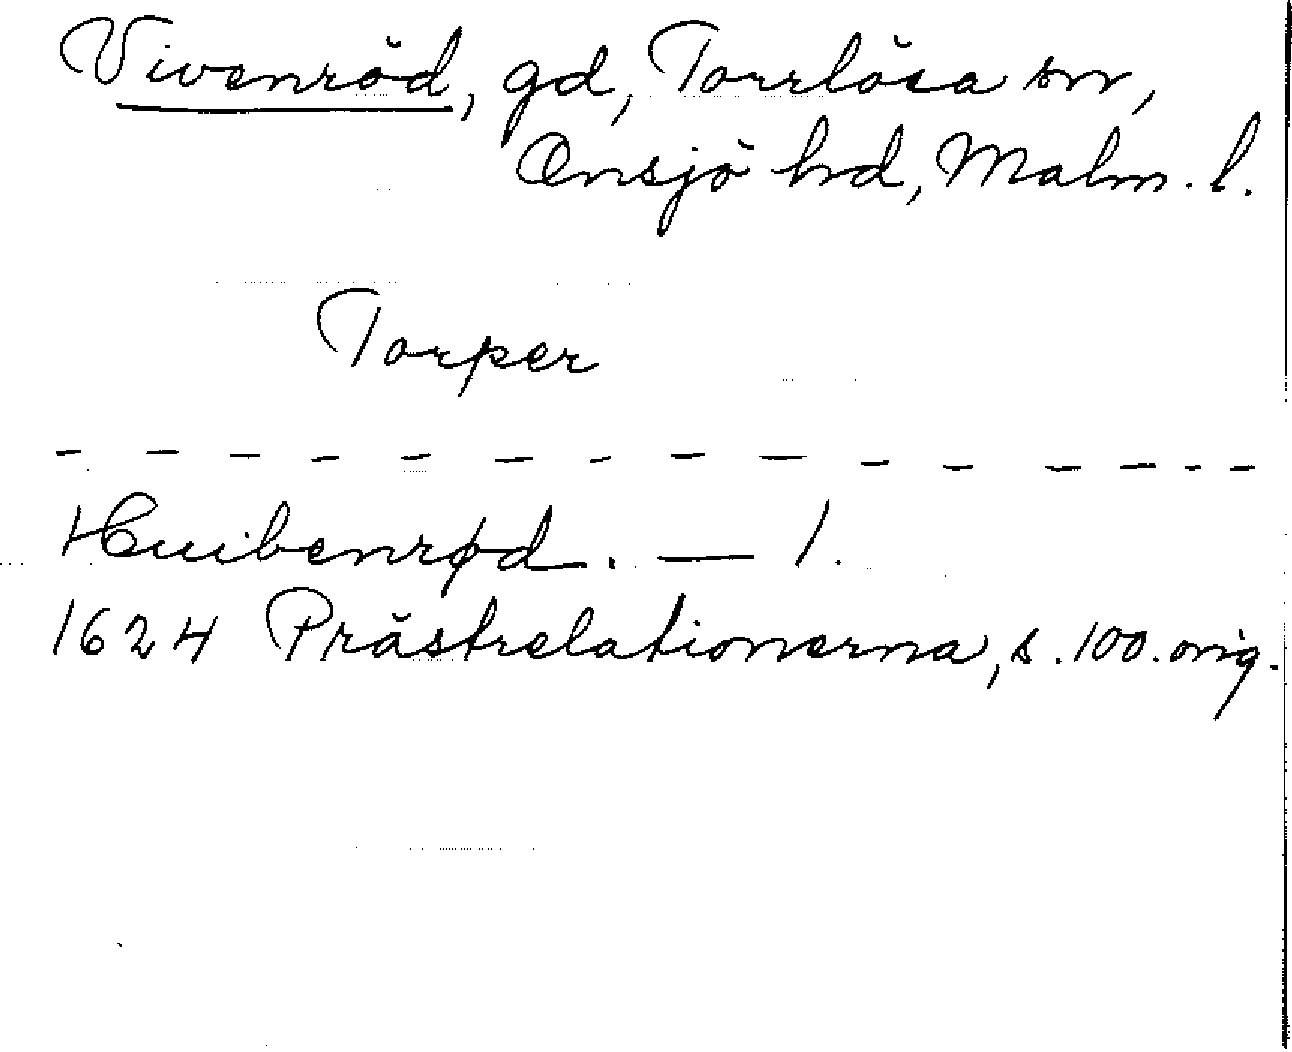 Vivenröd, gd, Torrlösa sn,
Onsjö hd, Malm. l.
Torper
- - - - - - - - - - - - - - -
Huibenrød. — 1.
1624 Prästrelationerna, s. 100. orig.